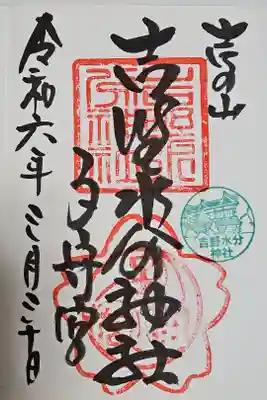 吉野山
吉野水分神社
子守宮
令和六年三月二十日
吉野水分
神社